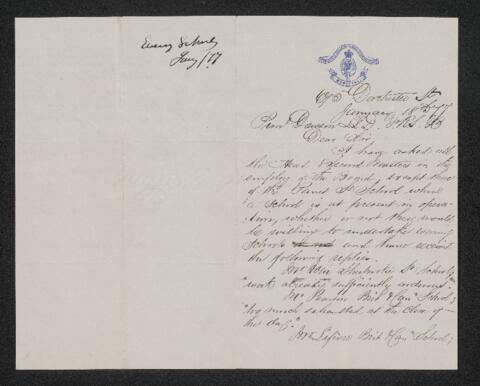 Evening Schools
Jany /77
Dorchester St
January 18th 77
Dawson L.L.D. F.R.S.
Dear Sir
I have asked all
the Head & Second Masters in the
employ of the Board, except those
of the Panet St School where
a School is at present in opera-
tion, whether or not they would
be willing to undertake evening
Schools and have received
the following replies.
Mr St. School;
"work already sufficiently onerous."
Mr Pearson Brit & Can School;
"too much exhausted at the close of
the day."
Mr Brit & Can School;